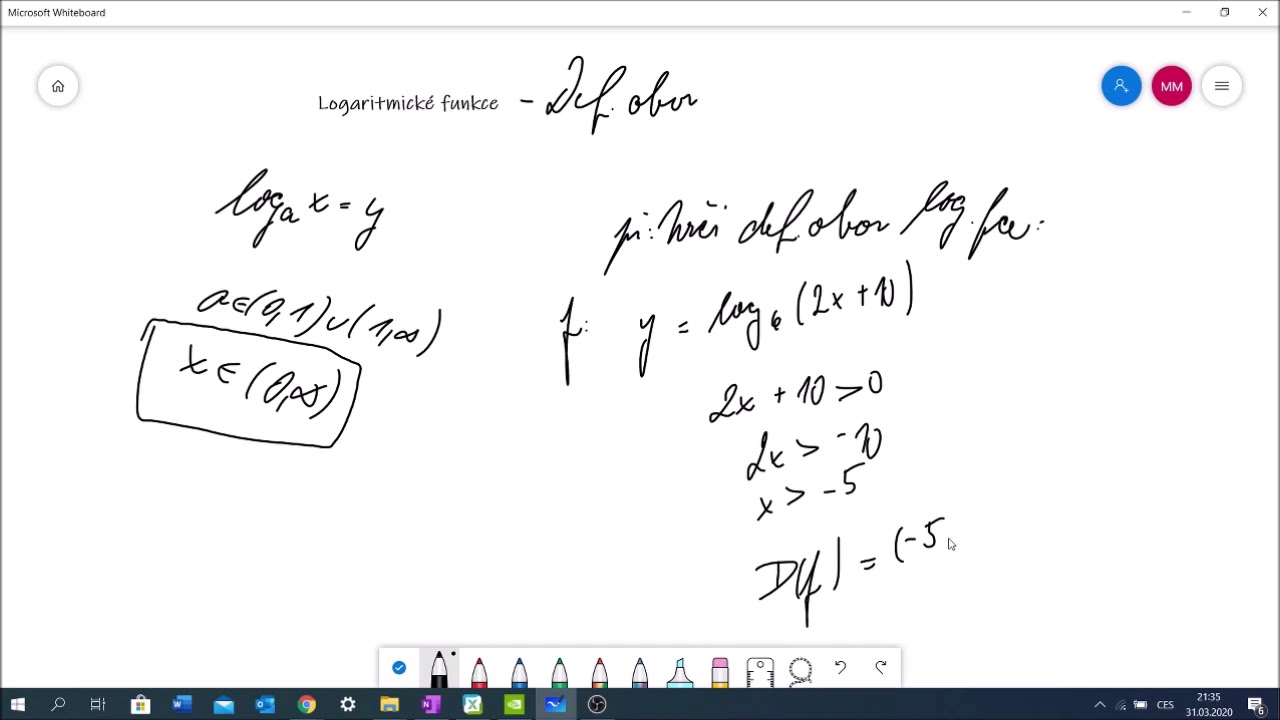 Microsoft Whiteboard
Logaritmické funkce - Def. obor
MM
logₐ x = y
a ∈ (0,1) ∪ (1,∞)
x ∈ (0,∞)
př: Urči def. obor log. fce:
f: y = log₆ (2x + 10)
2x + 10 > 0
2x > -10
x > -5
D(f) = (-5
CES
21:35
31.03.2020
6